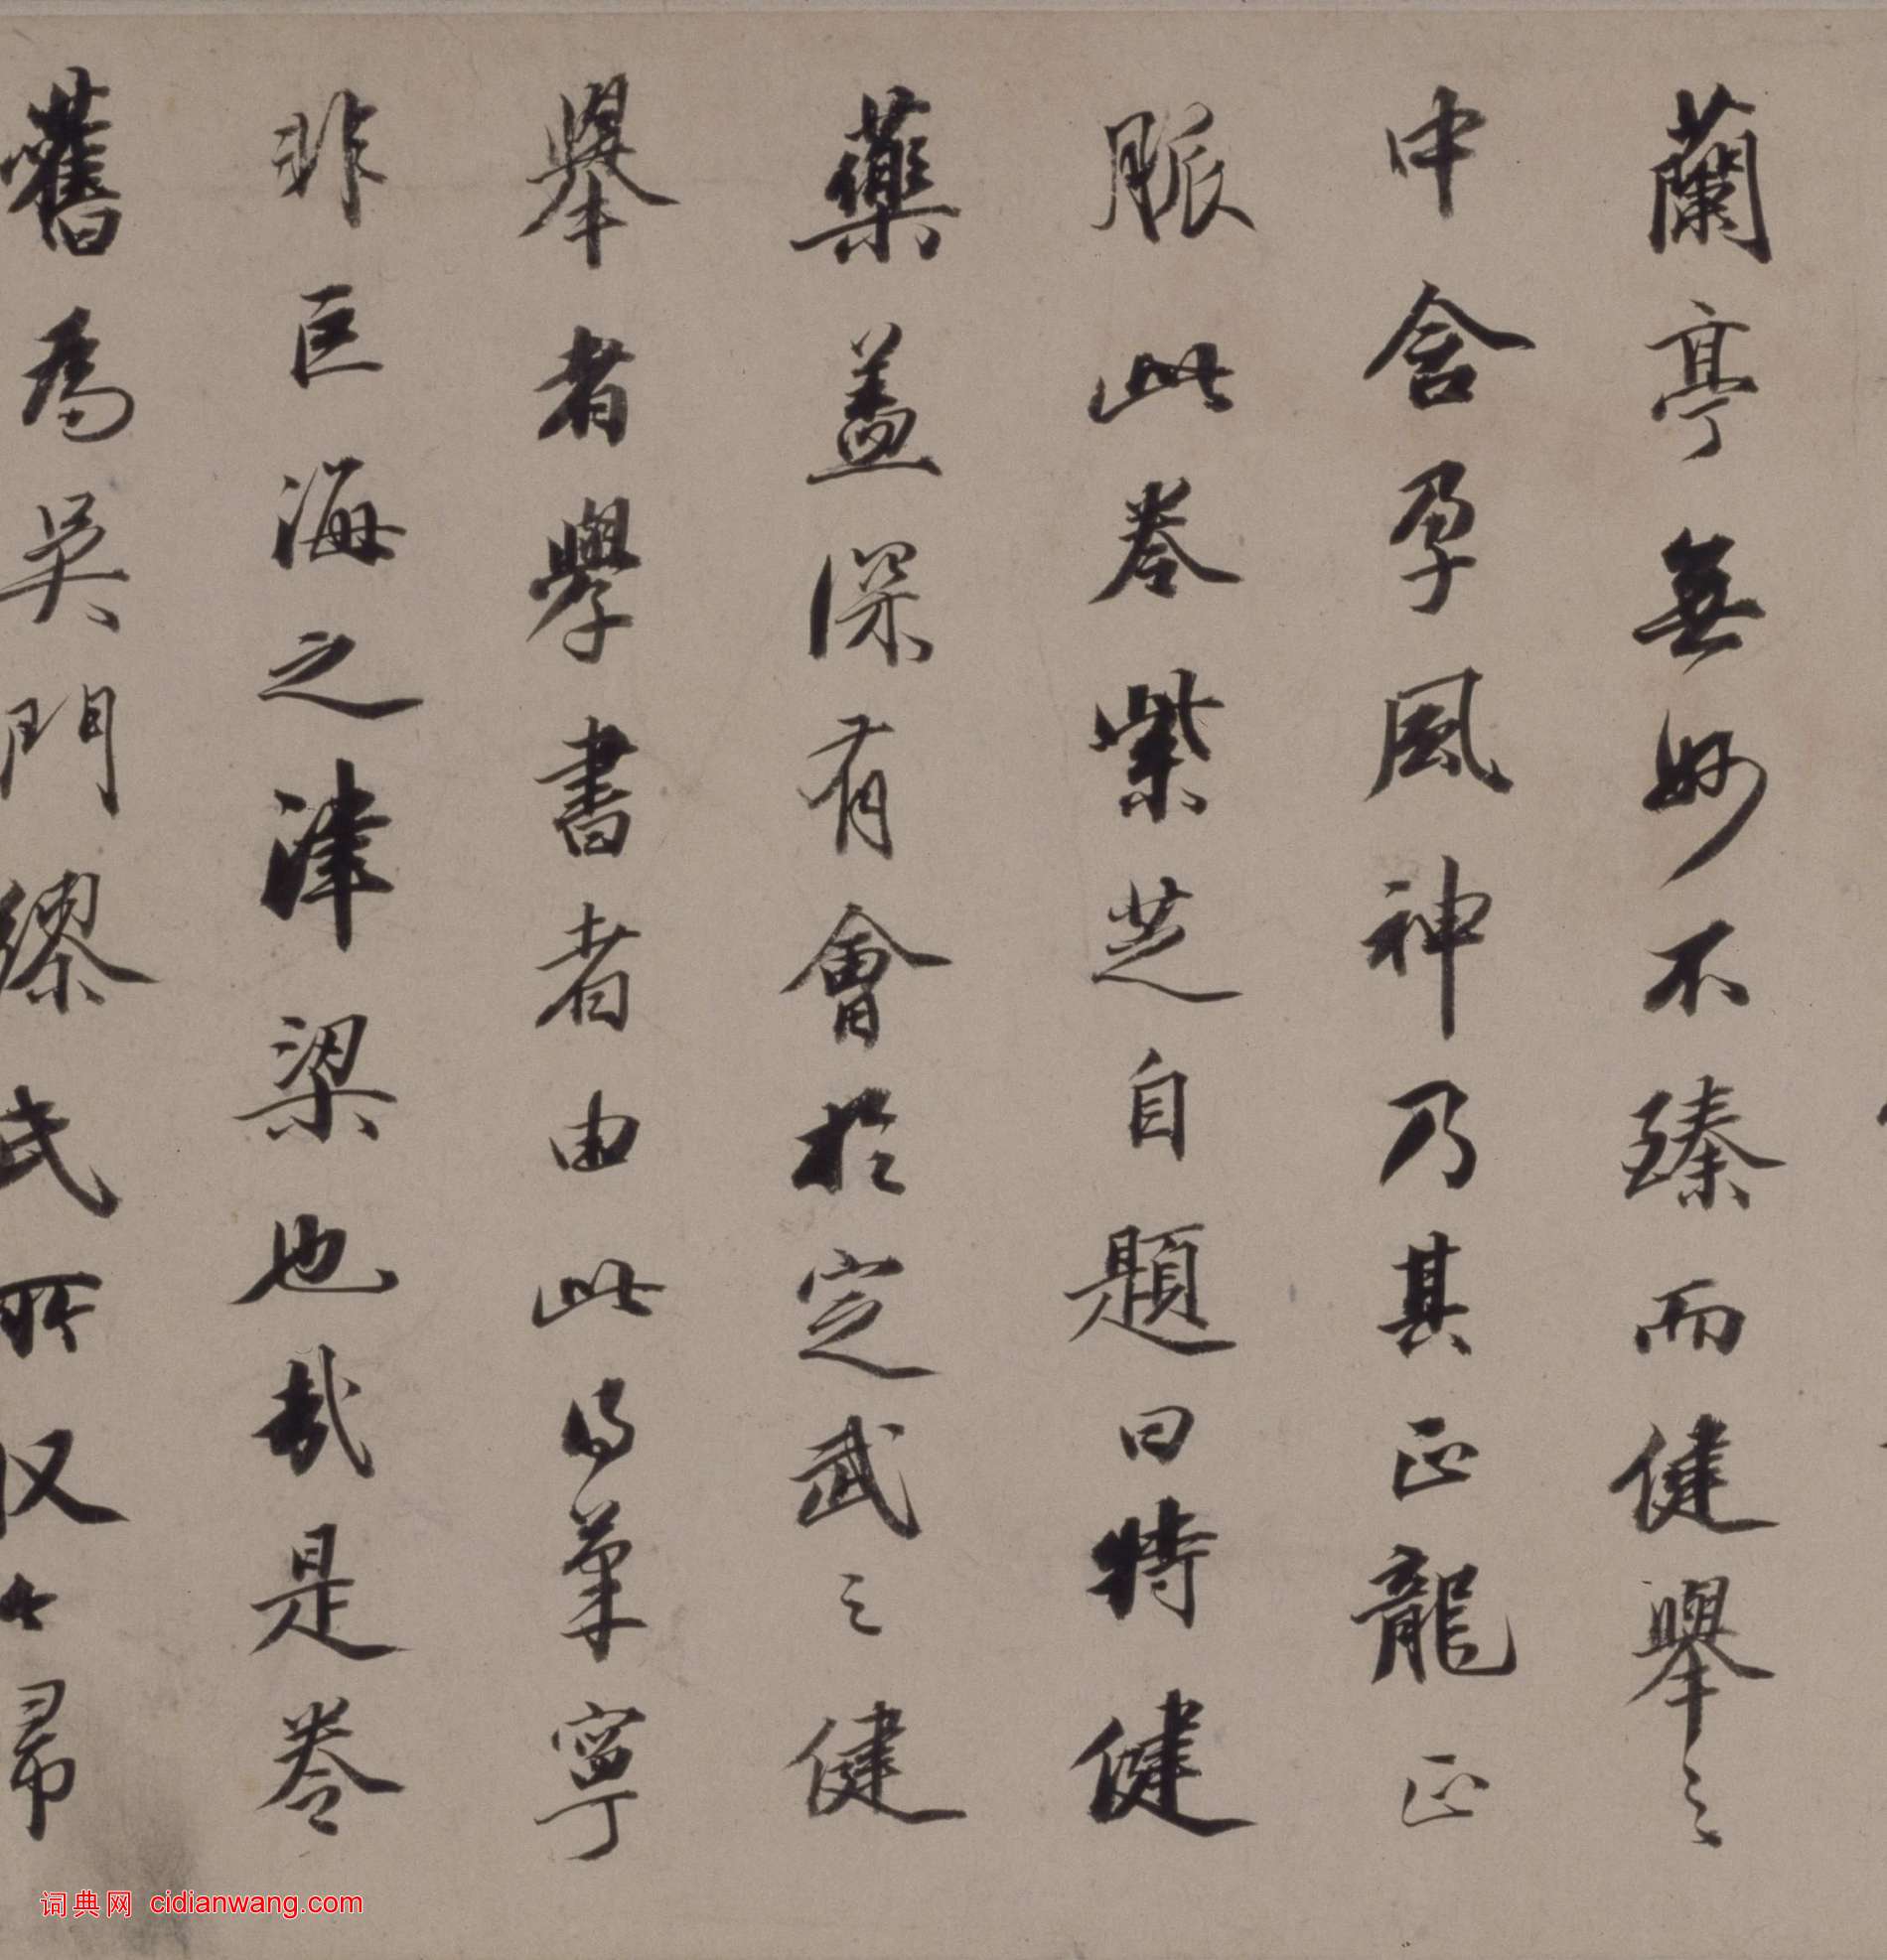 蘭亭無妙不臻而健舉之
中含孕風神乃其正龍正
脈此卷紫芝自題曰特健
藥蓋深有會於定武之健
舉者學書者由此得筆寧
非巨海之津梁也哉是卷
舊為吳門繆氏所収今歸
词典网 cidianwang.com